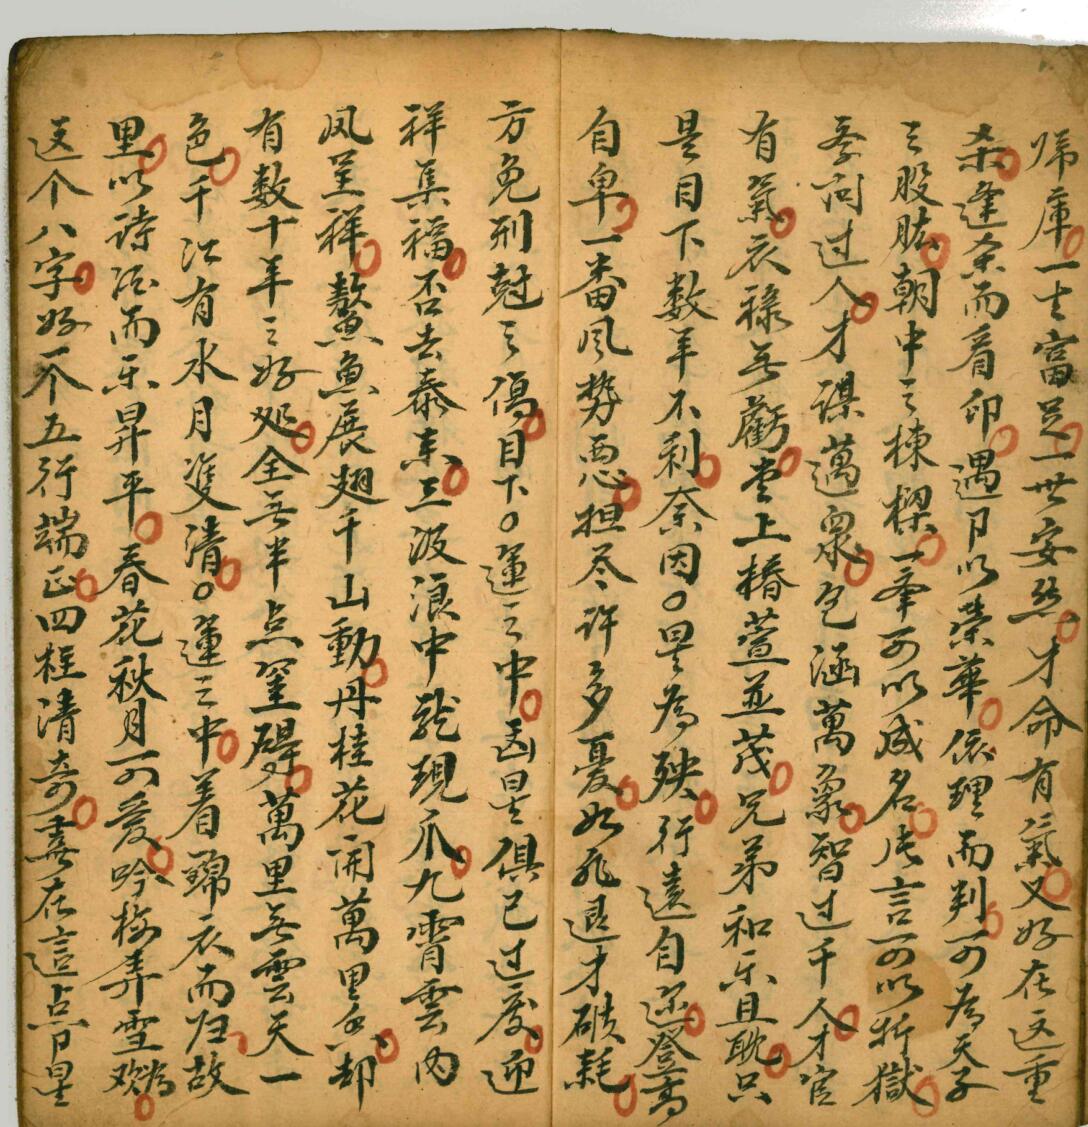 帰庫一主富足一世安然才命有氣又好在这重
杀逢杀而着卬遇卩以荣華依理而判可為天子
之股肱朝中之棟樑一牽可以成名片言可以折獄
李问过人才谋邁衆包涵萬象智过千人才官
有氣衣禄无虧堂上椿萱並茂兄弟和乐且耽只
是目下数年不利奈因〇星為殃行遠自迩登高
自卑一番风势恶担尽许多憂如非退才破耗
方免刑尅之傷目下〇運之中凶星俱已过度迎
祥集福否去泰来三汲浪中龍現爪九霄雲内
凤呈祥鰲魚展翅千山動丹桂花开萬里香却
有数十年之好処全无半点窒碍萬里无雲天一
色千江有水月隻清〇運之中着錦衣而归故
里以诗酒而乐昇平春花秋月可爱吟梅弄雪為欢
这个八字好一个五行端正四柱清奇喜在這点卩星